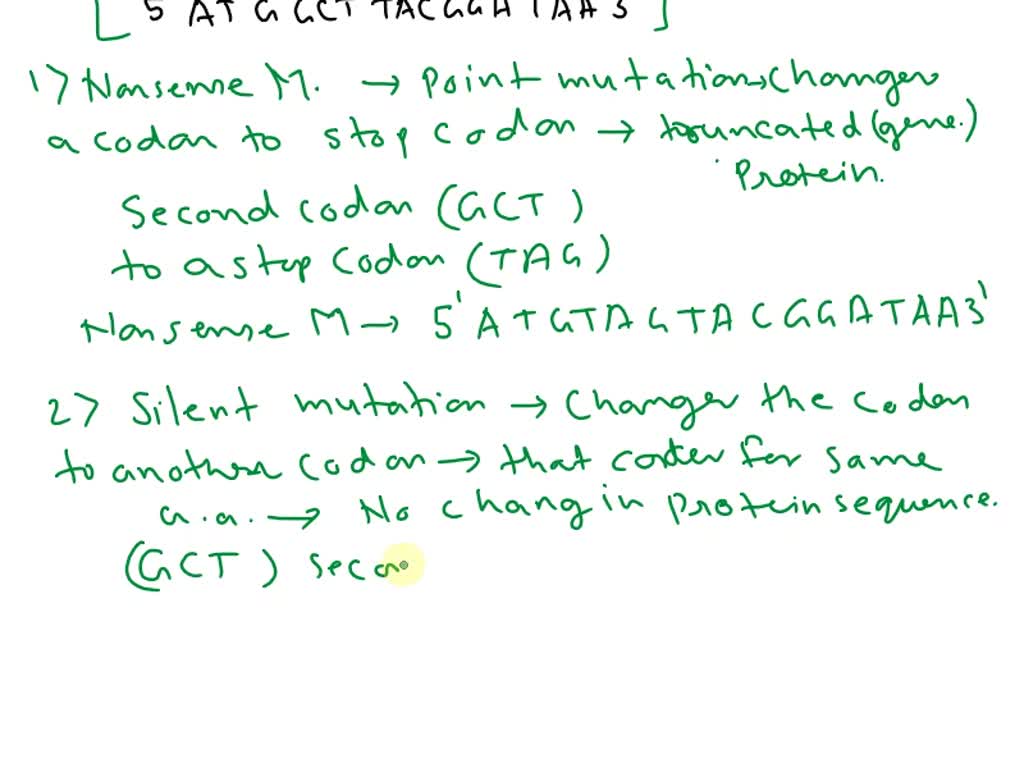 [ 5 ATG GCT TACGGATAA3 ]
1) Nonsense M. → Point mutation→Changes
a codon to stop codon → truncated (gene.)
Protein.
Second codon (GCT)
to a stop codon (TAG)
Nonsense M → 5' ATGTAGTACGGATAA3'
2) Silent mutation → Changes the codon
to another codon → that codes for same
a.a. → No chang in Protein sequence.
(GCT) seco